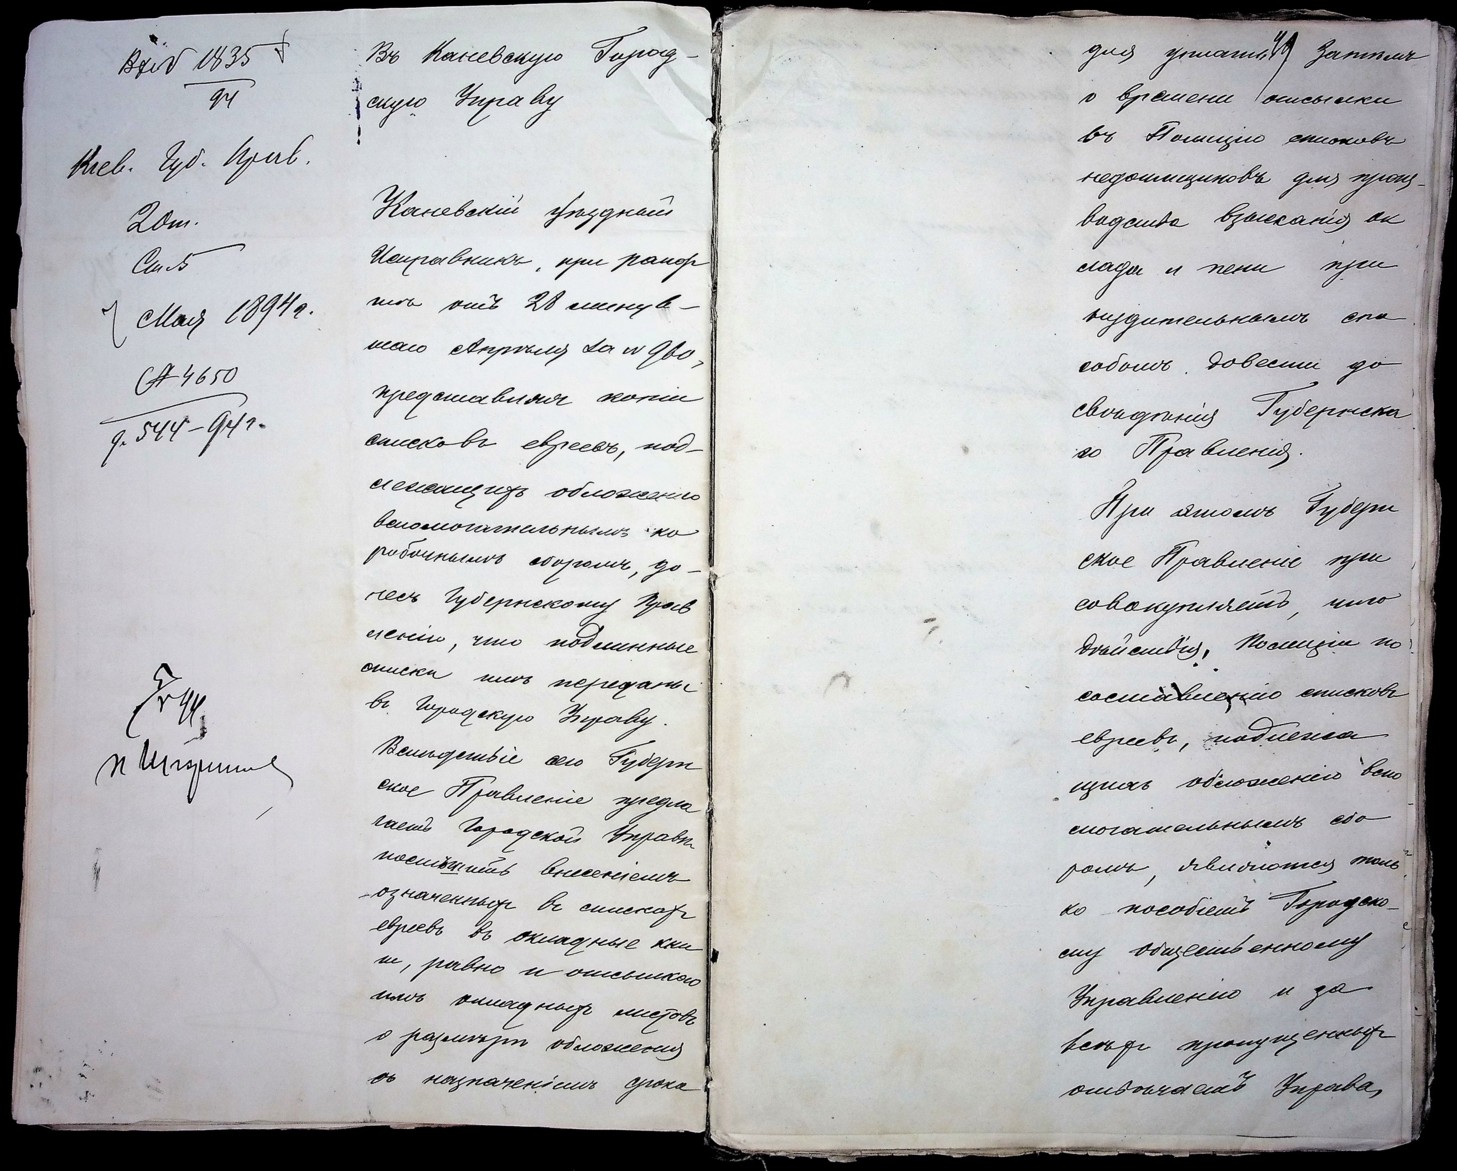 Вход 1835
94
Киев. Губ. Прав.
2 От.
Ст. 5
Мая 1894 г.
№ 4650
д. 544-94 г.
Въ Каневскую Город-
скую Управу
Каневскій Уѣздный
Исправникъ, при рапор
тѣ отъ 28 минув-
шаго Апрѣля за № 960,
представляя копіи
списковъ евреевъ, под-
лежащихъ обложенію
вспомогательнымъ ко
робочнымъ сборомъ, до-
несъ Губернскому Прав
ленію, что подлинные
списки имъ переданы
въ Городскую Управу.
Вслѣдствіе сего Губерн
ское Правленіе предла
гаетъ Городской Управѣ
поспѣшить внесеніемъ
означенныхъ въ спискахъ
евреевъ въ окладные кни
ги, равно и отсылкою
имъ окладныхъ листовъ
о размѣрѣ обложенія
съ назначеніемъ срока
49
для уплаты. Затѣмъ
о времени отсылки
въ Полицію списковъ
недоимщиковъ для произ-
водства взысканія ок
лада и пени при
нудительнымъ спо
собомъ довести до
свѣдѣнія Губернска
го Правленія.
При этомъ Губерн
ское Правленіе при
совокупляетъ, что
дѣйствія Полиціи по
составленію списковъ
евреевъ, подлежа
щихъ обложенію вспо
могательнымъ сбо
ромъ, являются толь
ко пособіемъ Городско-
му общественному
Управленію и за
всѣхъ пропущенныхъ
отвѣчаетъ Управа,